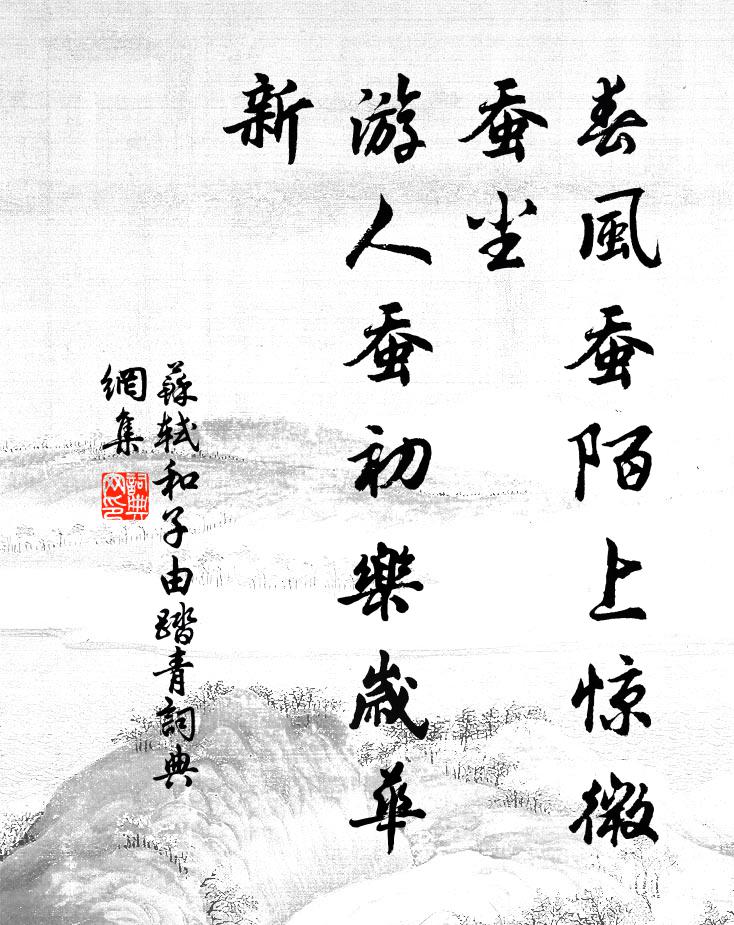 春風蚕陌上惊微
蚕尘
游人蚕初樂歲華
新
蘇軾和子由踏青詞典
網集
詞典
网印